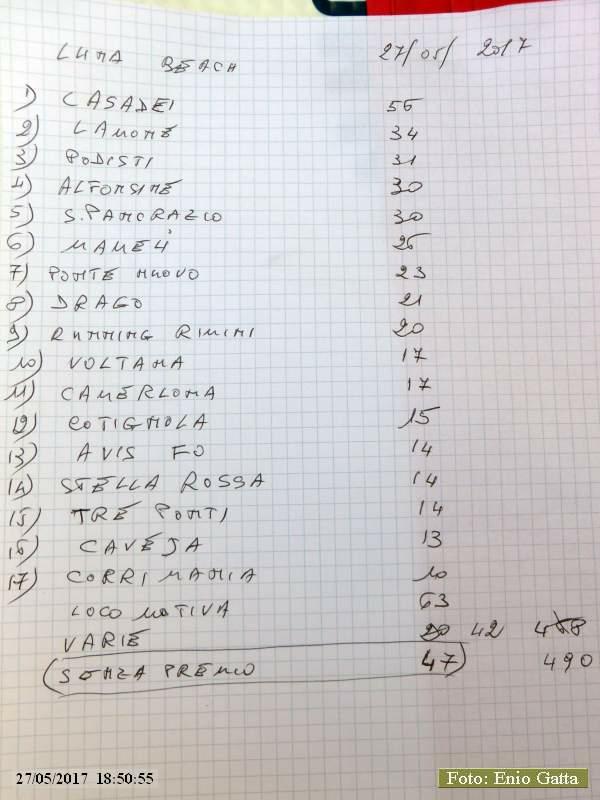 LUNA BEACH 27/05/2017
1) CASADEI 56
2) LAMONE 34
3) PODISTI 31
4) ALFONSINE 30
5) S.PANCRAZIO 30
6) MAMELI 26
7) PONTE NUOVO 23
8) DRAGO 21
9) RUNNING RIMINI 20
10) VOLTANA 17
11) CAMERLONA 17
12) COTIGNOLA 15
13) AVIS FO 14
14) STELLA ROSSA 14
15) TRE PONTI 14
16) CAVEJA 13
17) CORRI MANIA 10
LOCOMOTIVA 63
VARIE 20 42 468
(SENZA PREMIO 47) 490
27/05/2017 18:50:55
Foto: Enio Gatta